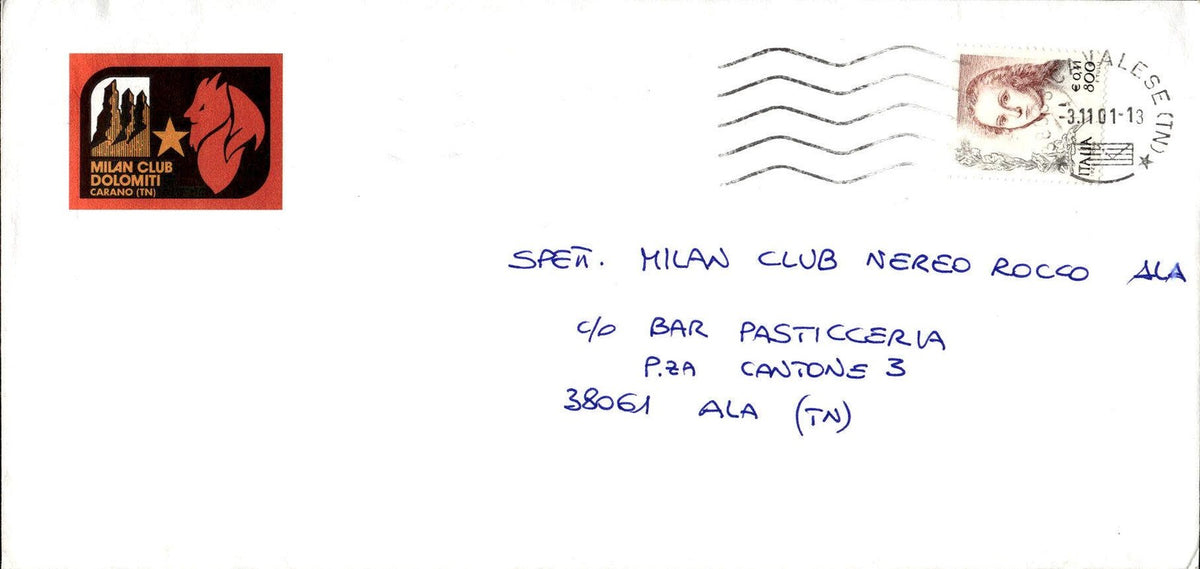 MILAN CLUB
DOLOMITI
CARANO (TN)
VALESE (TN)
-3.11.01-13
€ 0,41
800
ITALIA
SPETT. MILAN CLUB NEREO ROCCO ALA
c/o BAR PASTICCERIA
P.ZA CANTONE 3
38061 ALA (TN)